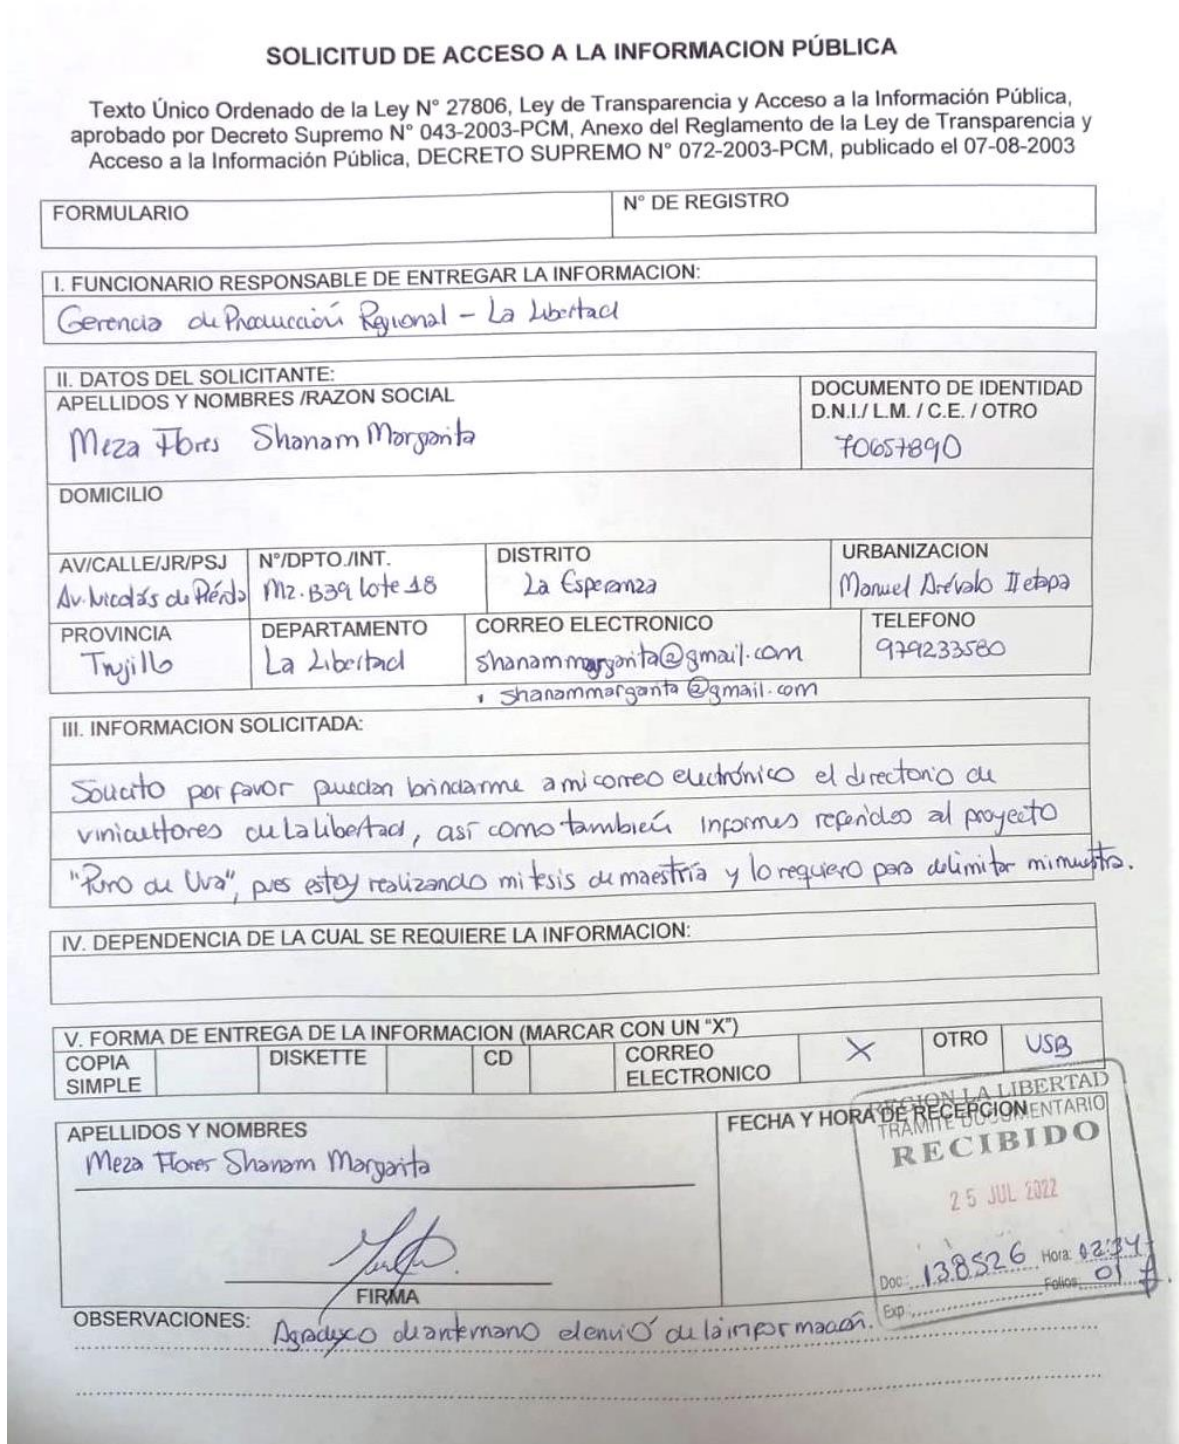 SOLICITUD DE ACCESO A LA INFORMACION PÚBLICA
Texto Único Ordenado de la Ley N° 27806, Ley de Transparencia y Acceso a la Información Pública,
aprobado por Decreto Supremo N° 043-2003-PCM, Anexo del Reglamento de la Ley de Transparencia y
Acceso a la Información Pública, DECRETO SUPREMO N° 072-2003-PCM, publicado el 07-08-2003
FORMULARIO
N° DE REGISTRO
I. FUNCIONARIO RESPONSABLE DE ENTREGAR LA INFORMACION:
Gerencia de Producción Regional - La Libertad
II. DATOS DEL SOLICITANTE:
APELLIDOS Y NOMBRES /RAZON SOCIAL
Meza Flores Shanam Margarita
DOCUMENTO DE IDENTIDAD
D.N.I./ L.M. / C.E. / OTRO
70657890
DOMICILIO
AV/CALLE/JR/PSJ
Av. Nicolás de Piérola
N°/DPTO./INT.
Mz. B39 Lote 18
DISTRITO
La Esperanza
URBANIZACION
Manuel Arévalo II etapa
PROVINCIA
Trujillo
DEPARTAMENTO
La Libertad
CORREO ELECTRONICO
shanammargarita@gmail.com
shanammargarita@gmail.com
TELEFONO
979233580
III. INFORMACION SOLICITADA:
Solicito por favor puedan brindarme a mi correo electrónico el directorio de
vinicultores de La libertad, así como también informes referidos al proyecto
"Puro de Uva", pues estoy realizando mi tesis de maestría y lo requiero para delimitar mi muestra.
IV. DEPENDENCIA DE LA CUAL SE REQUIERE LA INFORMACION:
V. FORMA DE ENTREGA DE LA INFORMACION (MARCAR CON UN "X")
COPIA
SIMPLE
DISKETTE
CD
CORREO
ELECTRONICO
X
OTRO
USB
APELLIDOS Y NOMBRES
Meza Flores Shanam Margarita
FIRMA
FECHA Y HORA DE RECEPCION
REGION LA LIBERTAD
TRAMITE DOCUMENTARIO
RECIBIDO
25 JUL 2022
Doc: 138526 Hora: 02:34
Folios: 01
Exp:
OBSERVACIONES: Agradezco de antemano el envió de la información.